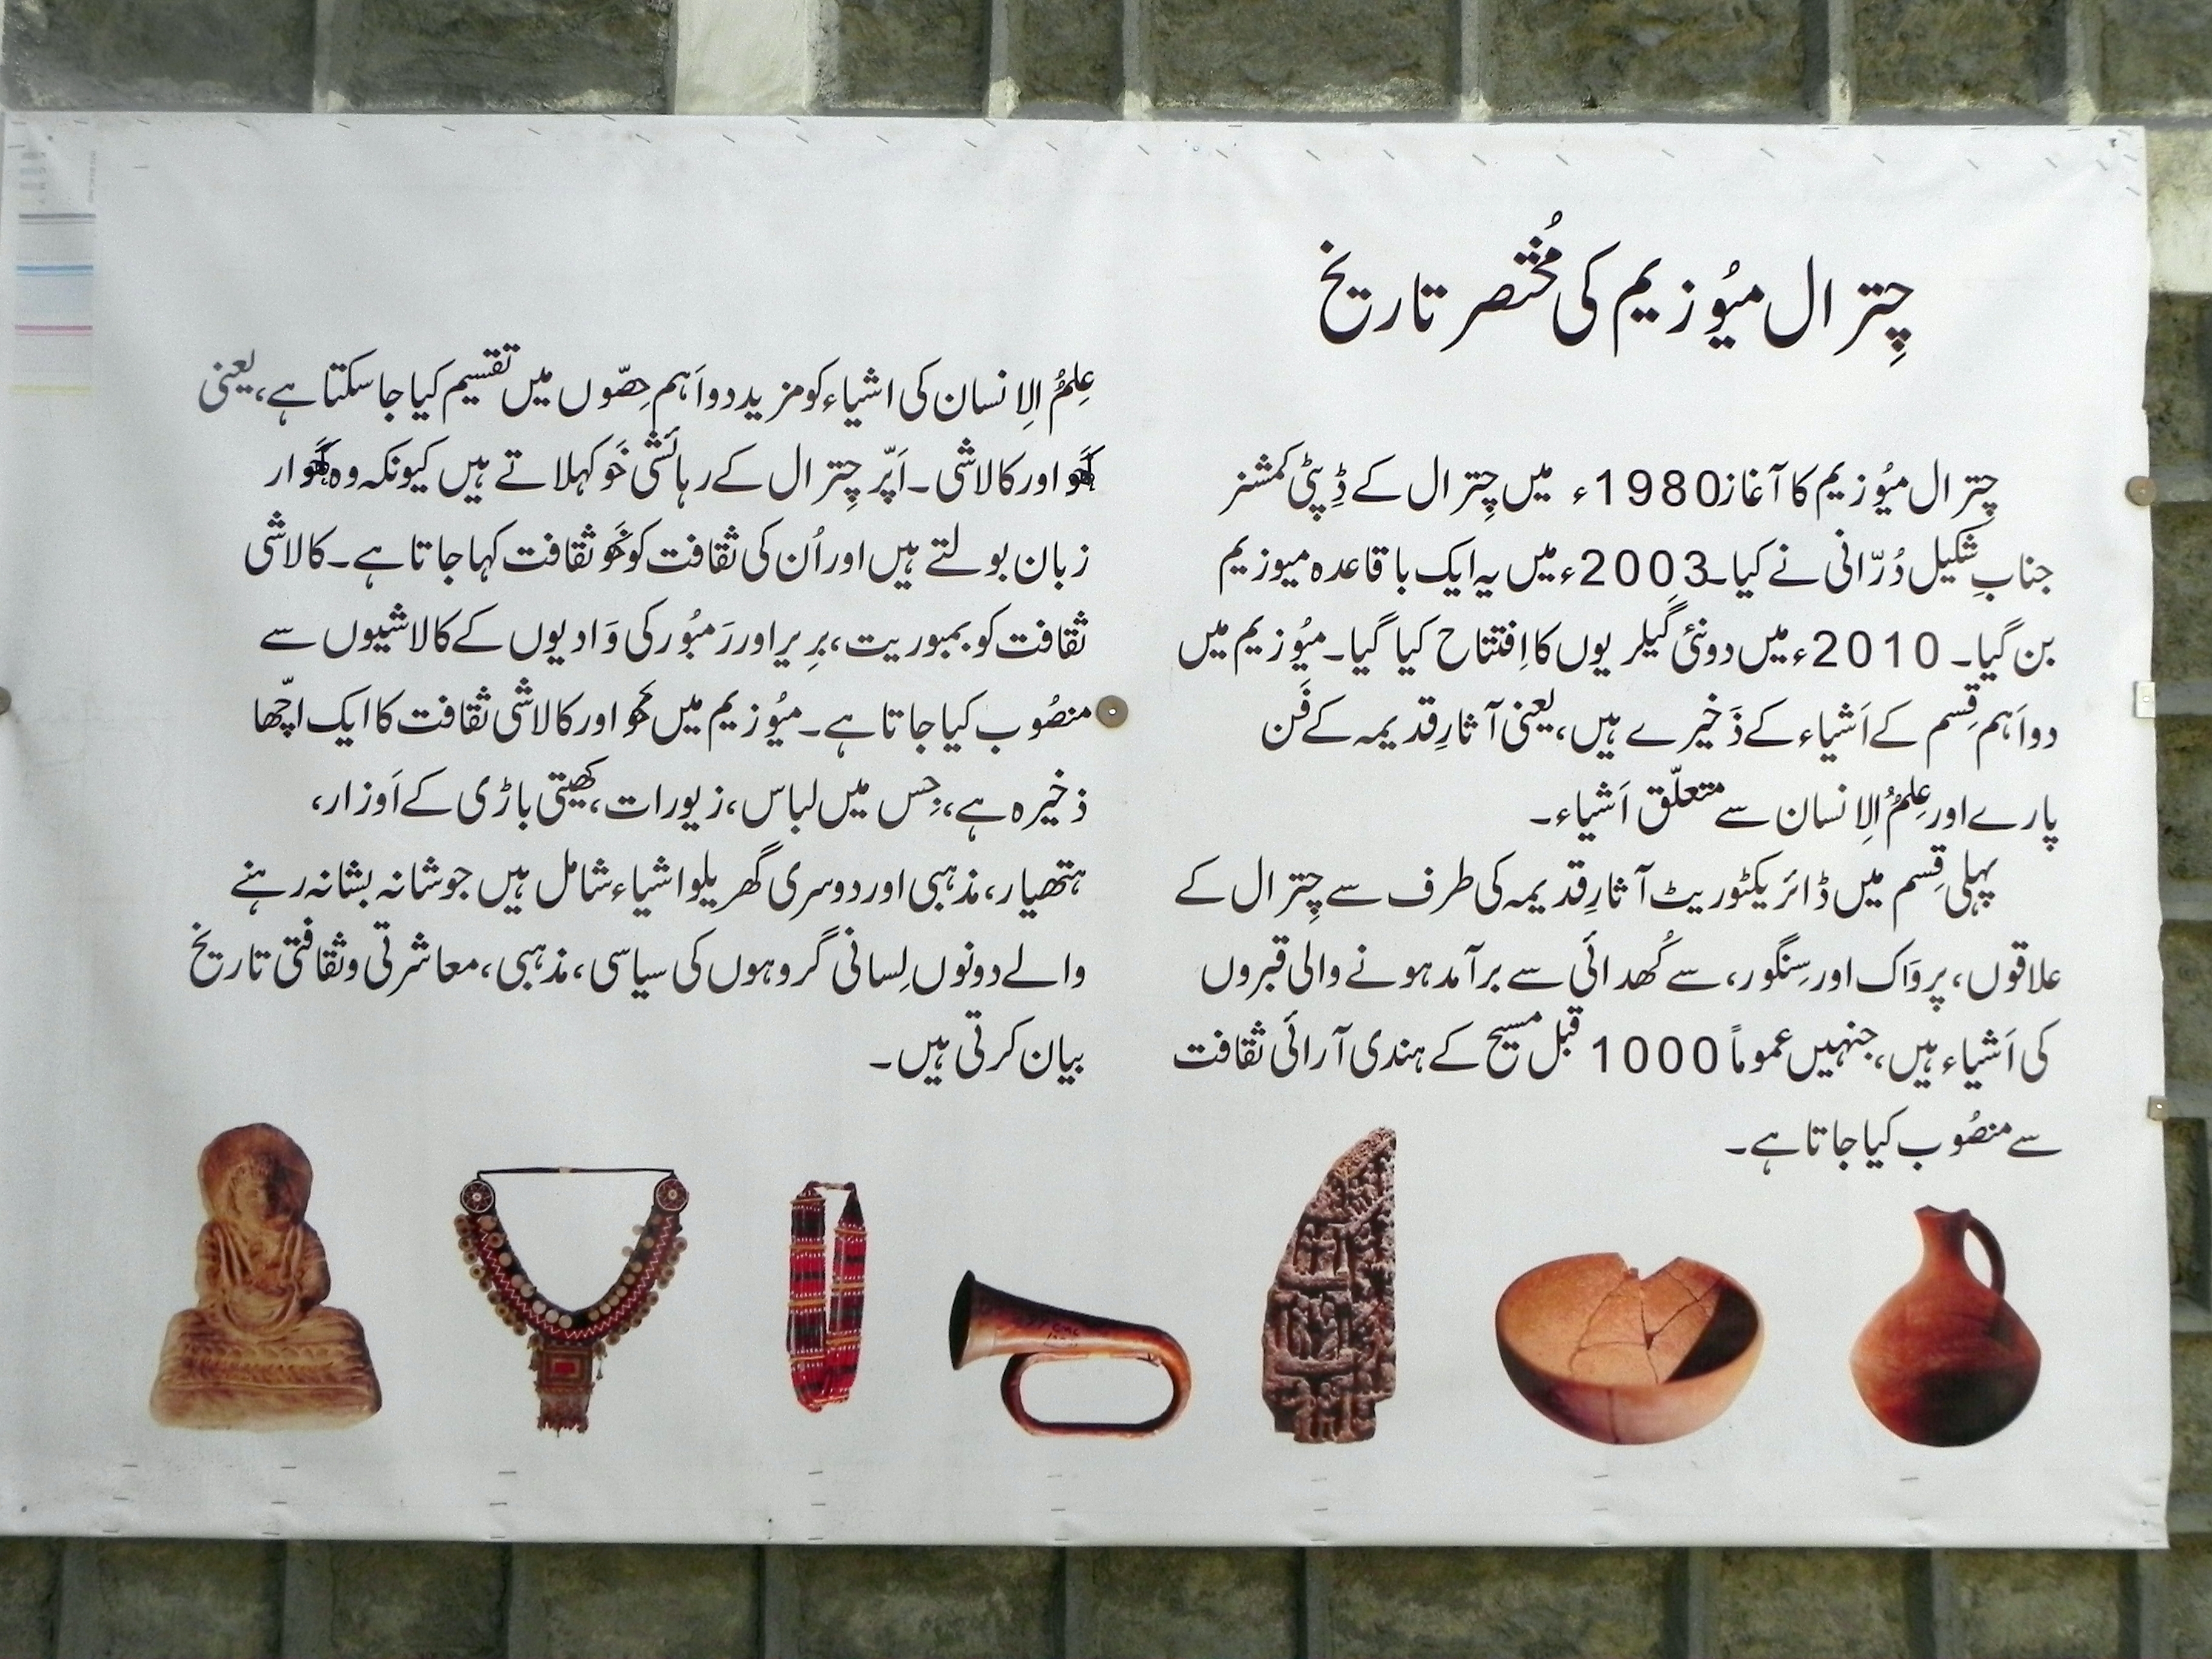 چِترال میُوزیم کی مُختصر تاریخ
چِترال میُوزیم کا آغاز 1980ء میں چِترال کے ڈِپٹی کمشنر
جنابِ شکیل دُرّانی نے کیا۔ 2003ء میں یہ ایک باقاعدہ میوزیم
بن گیا۔ 2010ء میں دو نئی گیلریوں کا اِفتتاح کیا گیا۔ میُوزیم میں
دو اَہم قِسم کے اَشیاء کے ذَخیرے ہیں، یعنی آثارِ قدیمہ کے فَن
پارے اور عِلمُ الاِنسان سے متعلّق اَشیاء۔
پہلی قِسم میں ڈائریکٹوریٹ آثارِ قدیمہ کی طرف سے چِترال کے
علاقوں، پروَاک اور سِنگور، سے کُھدائی سے برآمد ہونے والی قبروں
کی اَشیاء ہیں، جنہیں عموماً 1000 قبل مسیح کے ہندی آرائی ثقافت
سے منصُوب کیا جاتا ہے۔
عِلمُ الاِنسان کی اشیاء کو مزید دو اَہم حِصّوں میں تقسیم کیا جا سکتا ہے، یعنی
کھَو اور کالاشی۔ اَپّر چِترال کے رہائشی خَو کہلاتے ہیں کیونکہ وہ کھَوار
زبان بولتے ہیں اور اُن کی ثقافت کو کھَو ثقافت کہا جاتا ہے۔ کالاشی
ثقافت کو بمبوریت، بِریر اور رَمبُور کی وَادیوں کے کالاشیوں سے
منصُوب کیا جاتا ہے۔ میُوزیم میں کھو اور کالاشی ثقافت کا ایک اچّھا
ذخیرہ ہے، جِس میں لباس، زیورات، کھیتی باڑی کے اَوزار،
ہتھیار، مذہبی اور دوسری گھریلو اشیاء شامل ہیں جو شانہ بشانہ رہنے
والے دونوں لِسانی گروہوں کی سیاسی، مذہبی، معاشرتی و ثقافتی تاریخ
بیان کرتی ہیں۔